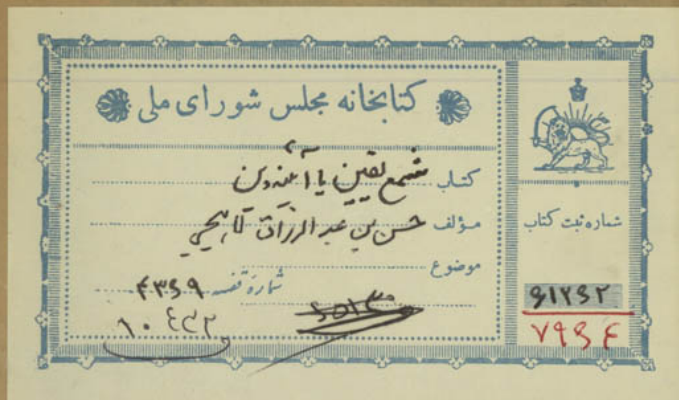 کتابخانه مجلس شورای ملی
کتاب شمع یقین یا آئینه دین
مؤلف حسن بن عبدالرزاق لاهیجی
موضوع
شمارهٔ قفسه ۴۳۶۹
۱۰۴۳۲
شماره ثبت کتاب
۶۱۲۶۲
۷۹۶۴